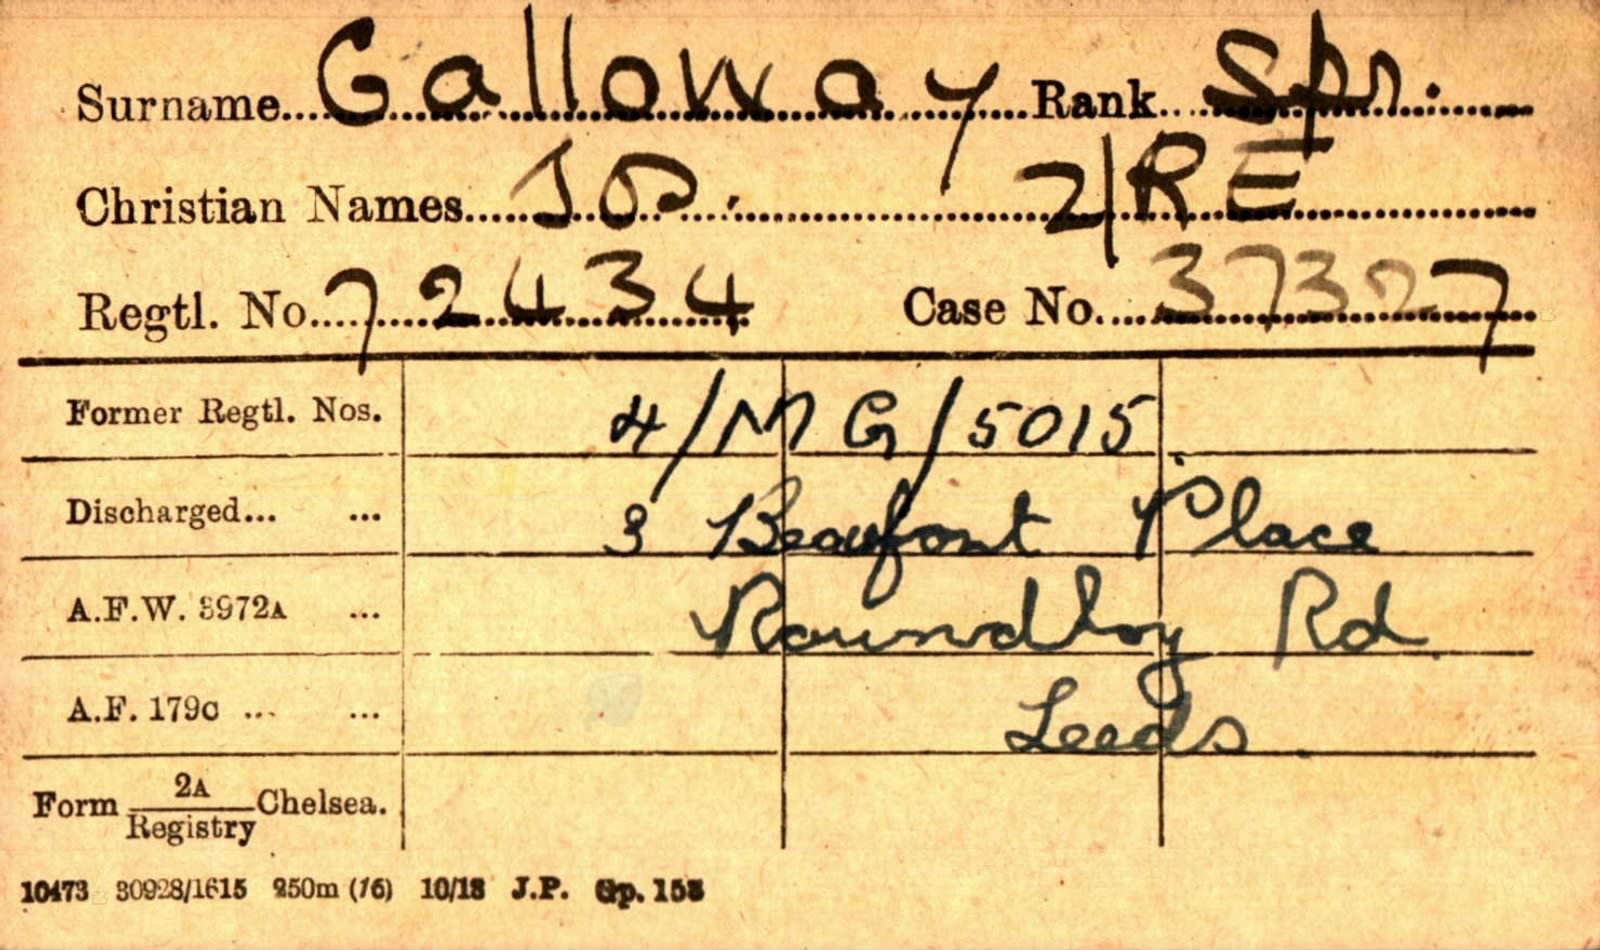 Surname Galloway Rank Spr.
Christian Names J 2/RE
Regtl. No. 72434 Case No. 37327
Former Regtl. Nos. 4/MG/5015.
Discharged... ... 3 Beaufont Place
A.F.W. 3972A ... Roundhay Rd.
A.F. 179c ... ... Leeds
Form 2A/Registry Chelsea.
10473 30928/1615 250m (16) 10/18 J.P. Gp. 153